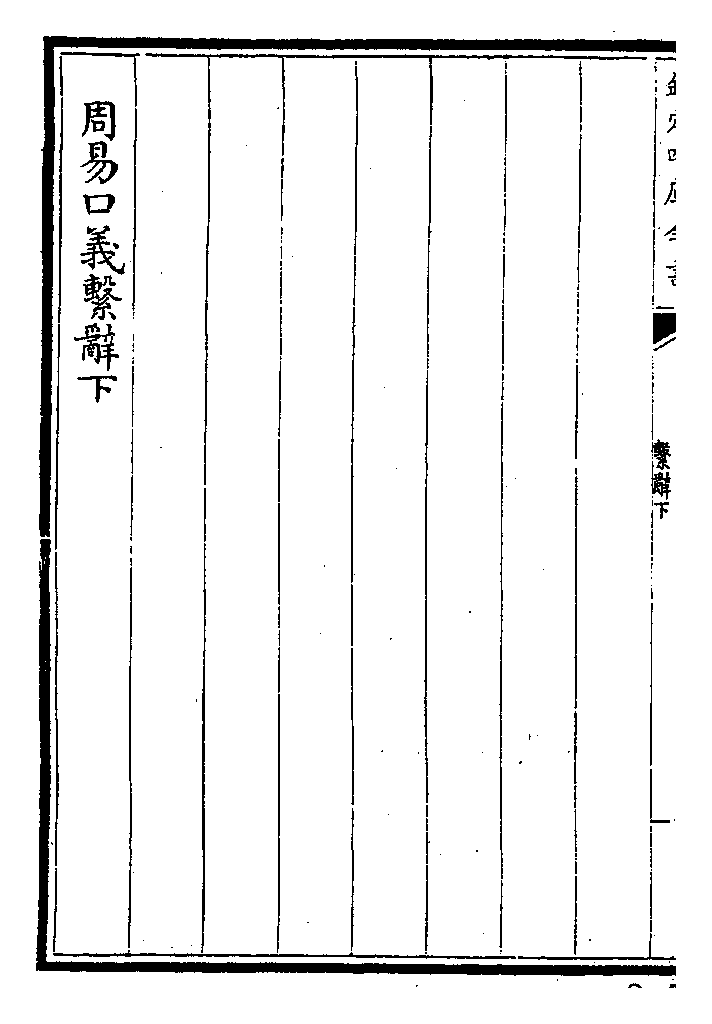 欽定四庫全書
繫辭下
周易口義繫辭下